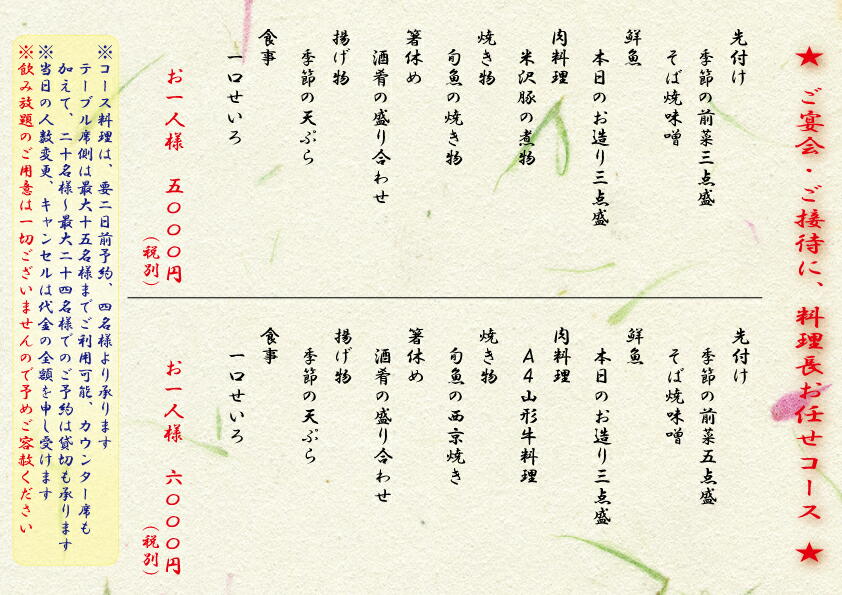 ★ ご宴会・ご接待に、料理長お任せコース ★
先付け
季節の前菜三点盛
そば焼味噌
鮮魚
本日のお造り三点盛
肉料理
米沢豚の煮物
焼き物
旬魚の焼き物
箸休め
酒肴の盛り合わせ
揚げ物
季節の天ぷら
食事
一口せいろ
お一人様 五〇〇〇円
(税別)
先付け
季節の前菜五点盛
そば焼味噌
鮮魚
本日のお造り三点盛
肉料理
A4山形牛料理
焼き物
旬魚の西京焼き
箸休め
酒肴の盛り合わせ
揚げ物
季節の天ぷら
食事
一口せいろ
お一人様 六〇〇〇円
(税別)
※コース料理は、要二日前予約、四名様より承ります
テーブル席側は最大十五名様までご利用可能、カウンター席も
加えて、二十名様~最大二十四名様でのご予約は貸切も承ります
※当日の人数変更、キャンセルは代金の全額を申し受けます
※飲み放題のご用意は一切ございませんので予めご容赦ください